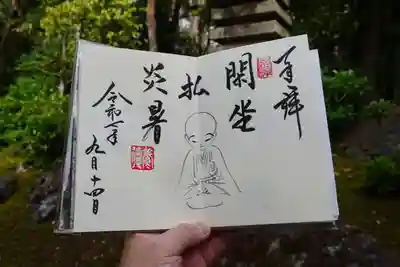 奉拝
閑坐
払
炎暑
令和元年
九月十四日